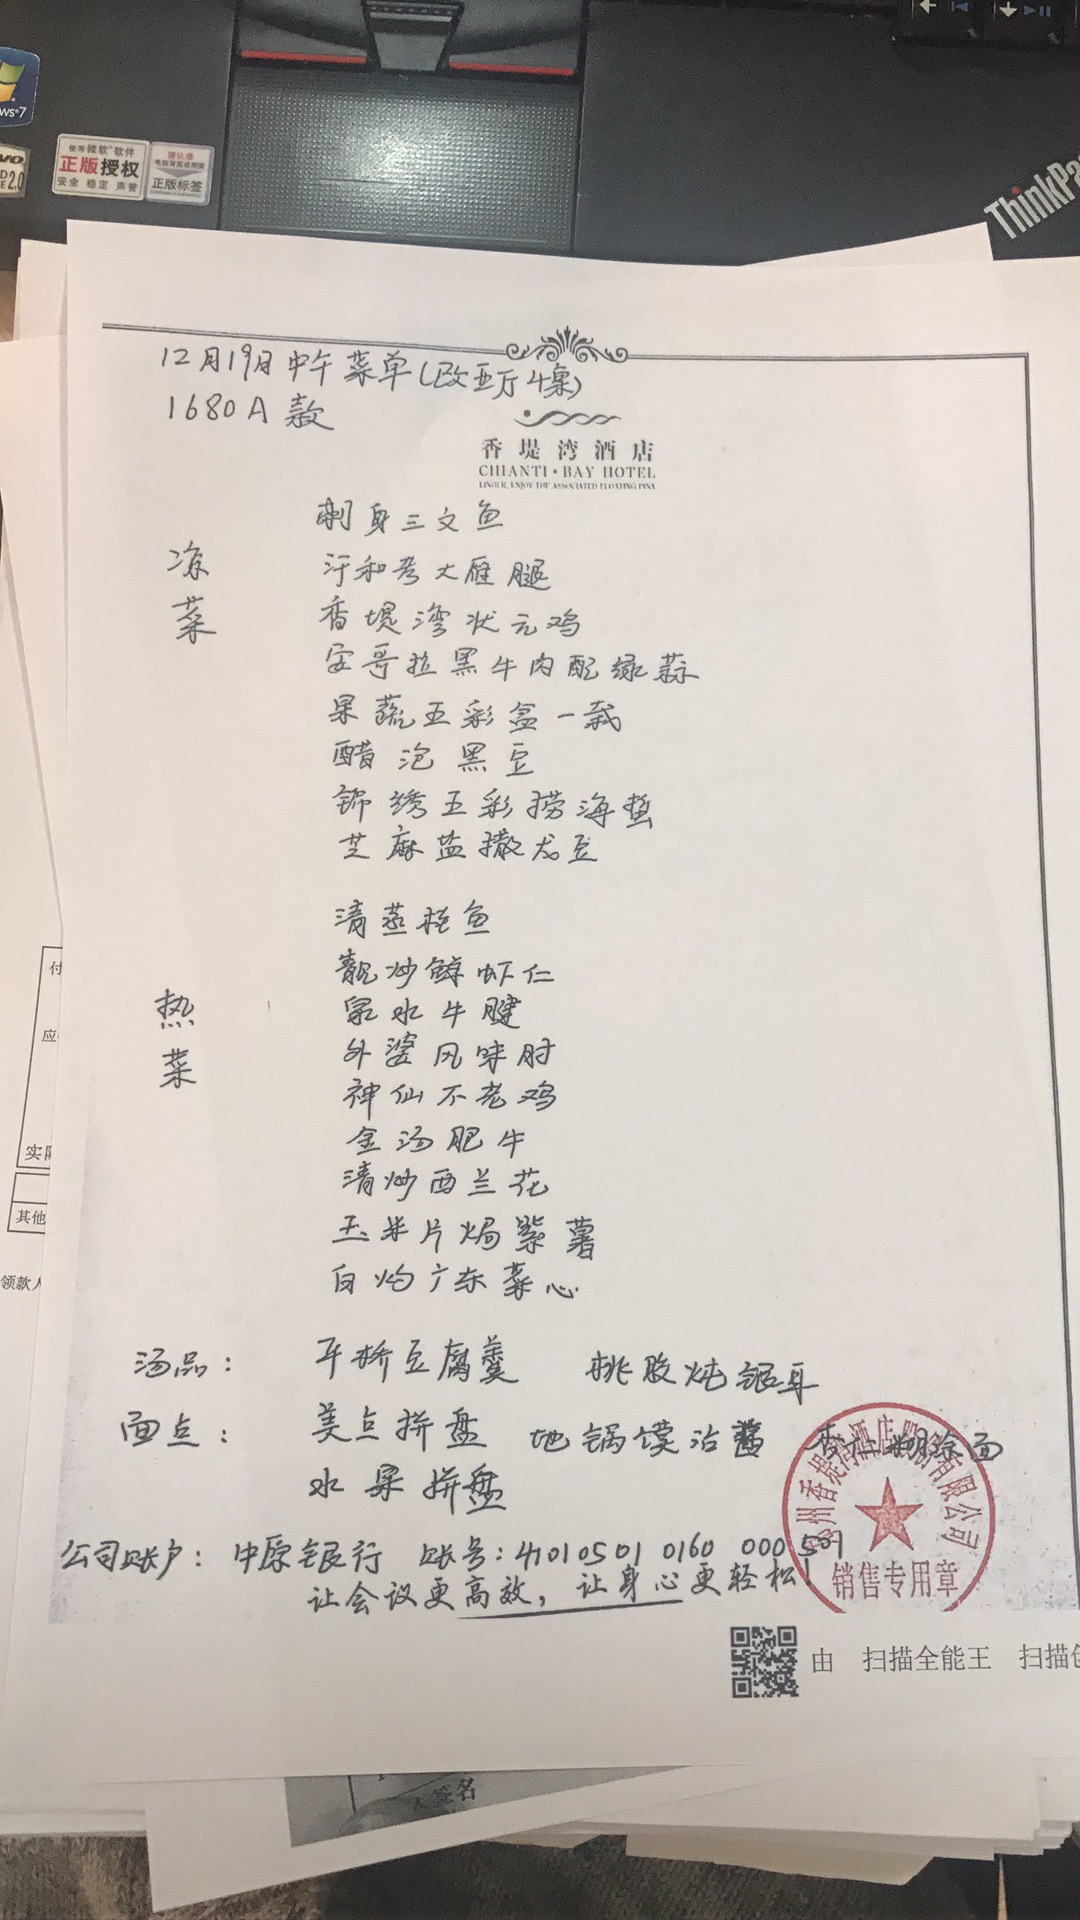 ws 7
使用微软软件
正版授权
安全 稳定 声誉
正版标签
ThinkPa
12月19日中午菜单(欧亚厅4桌)
1680A 款
香堤湾酒店
CHIANTI·BAY HOTEL
LINGER, ENJOY THE ASSOCIATED FLOATING PINA
凉菜
刺身三文鱼
汗和秀大雁腿
香堤湾状元鸡
安哥拉黑牛肉配绿蒜
果蔬五彩盒一截
醋泡黑豆
锦绣五彩捞海蜇
芝麻盐撒龙豆
热菜
清蒸桂鱼
靓炒鲜虾仁
泉水牛腱
外婆风味肘
神仙不老鸡
金汤肥牛
清炒西兰花
玉米片焗紫薯
白灼广东菜心
汤品: 平桥豆腐羹 桃胶炖银耳
面点: 美点拼盘 地锅馍沾酱 糊涂面
水果拼盘
公司账户: 中原银行 账号: 41010501 0160 000 501
让会议更高效, 让身心更轻松!
州香堤湾酒店 有限公司
销售专用章
由 扫描全能王 扫描创
付
应
实际
其他
领款人
人签名